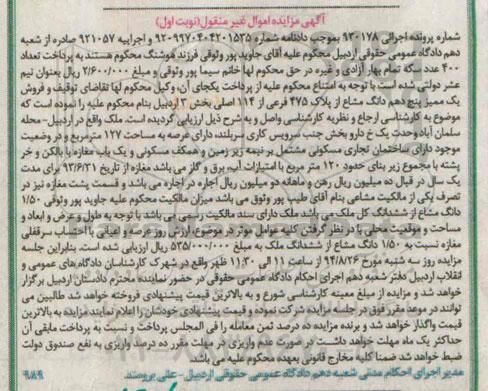 آگهی مزایده اموال غیر منقول(نوبت اول)
شماره پرونده اجرائی ۹۳۰۱۷۸ بموجب دادنامه شماره ۹۲۰۹۹۷۰۴۰۴۲۰۱۵۳۵ و اجراییه ۹۲۱۰۵۷ صادره از شعبه
دهم دادگاه عمومی حقوقی اردبیل محکوم علیه آقای جاوید پور وثوقی فرزند هوشنگ محکوم هستند به پرداخت تعداد
۴۰۰ عدد سکه تمام بهار آزادی و غیره در حق محکوم لها خانم سیما پور وثوقی و مبلغ ۲/۶۰۰/۰۰۰ ریال بعنوان نیم
عشر دولتی شده است با توجه به امتناع محکوم علیه از پرداخت یکجای آن، وکیل محکوم لها تقاضای توقیف و فروش
یک ممیز پنج دهم دانگ مشاع از پلاک ۴۷۵ فرعی از ۱۱۴ اصلی بخش ۳ اردبیل بنام محکوم علیه را نموده است که
موضوع به کارشناسی ارجاع و نظریه کارشناسی واصل و به شرح ذیل ارزیابی گردیده است. ملک واقع در اردبیل- محله
سلمان آباد وحدت یک خ دارو پخش جنب سرویس کاری سربلند، دارای عرصه به مساحت ۱۲۷ مترمربع و در وضعیت
موجود دارای ساختمان تجاری مسکونی مشتمل بر نیمه زیر زمین و همکف مسکونی و یک باب مغازه با بالکن و خر
پشته با مجموع زیر بنای حدود ۱۲۰ متر مربع با امتیازات آب، برق و گاز می باشد مغازه از تاریخ ۹۳/۶/۳۱ برای مدت
یک سال در قبال ده میلیون ریال رهن و ماهانه دو میلیون ریال اجاره در اجاره می باشد و قسمت پشت مغازه نیز در
تصرف یکی از مالکیت مشاعی بنام آقای طیب پور وثوق می باشد میزان مالکیت محکوم علیه جاوید پور وثوقی ۱/۵۰
دانگ مشاع از ششدانگ کل ملک می باشد ملک دارای سند مالکیت رسمی می باشد با توجه به طول و عرض و ابعاد و
مساحت و موقعیت محلی با در نظر گرفتن کلیه عوامل موثر در موضوع، ارزش روز عرصه و اعیانی با احتساب سرقفلی
مغازه نسبت به ۱/۵۰ دانگ مشاع از ششدانگ ملک به مبلغ ۵۳۵/۰۰۰/۰۰۰ ریال ارزیابی شده است. بنابراین جلسه
مزایده روز سه شنبه مورخ ۹۴/۸/۲۶ از ساعت ۱۱ الی ۱۱:۳۰ ظهر واقع در شهرک کارشناسان دادگاه های عمومی و
انقلاب اردبیل دفتر شعبه دهم اجرای احکام دادگاه عمومی حقوقی در حضور نماینده محترم دادستان اردبیل بر گزار
خواهد شد و مزایده از مبلغ معینه کارشناسی شورع و به بالاترین قیمت پیشنهادی فروخته خواهد شد طالبین می
توانند در موعد مقرر فوق در جلسه مزایده شرکت نموده و قیمت پیشنهادی خودشان را اعلام نمایند مزایده به بالاترین
قیمت واگذار خواهد شد و برنده مزایده ده درصد ثمن معامله را فی المجلس پرداخت و نسبت به پرداخت مابقی آن
حداکثر یک ماه مهلت خواهد داشت در صورت عدم واریزی در مهلت مقرر ده درصد واریزی به نفع صندوق دولت
ضبط خواهد شد ضمنا کلیه مخارج قانونی بعهده محکوم علیه می باشد
مدیر اجرای احکام مدنی شعبه دهم دادگاه عمومی حقوقی اردبیل - علی برومند
۹۸۹